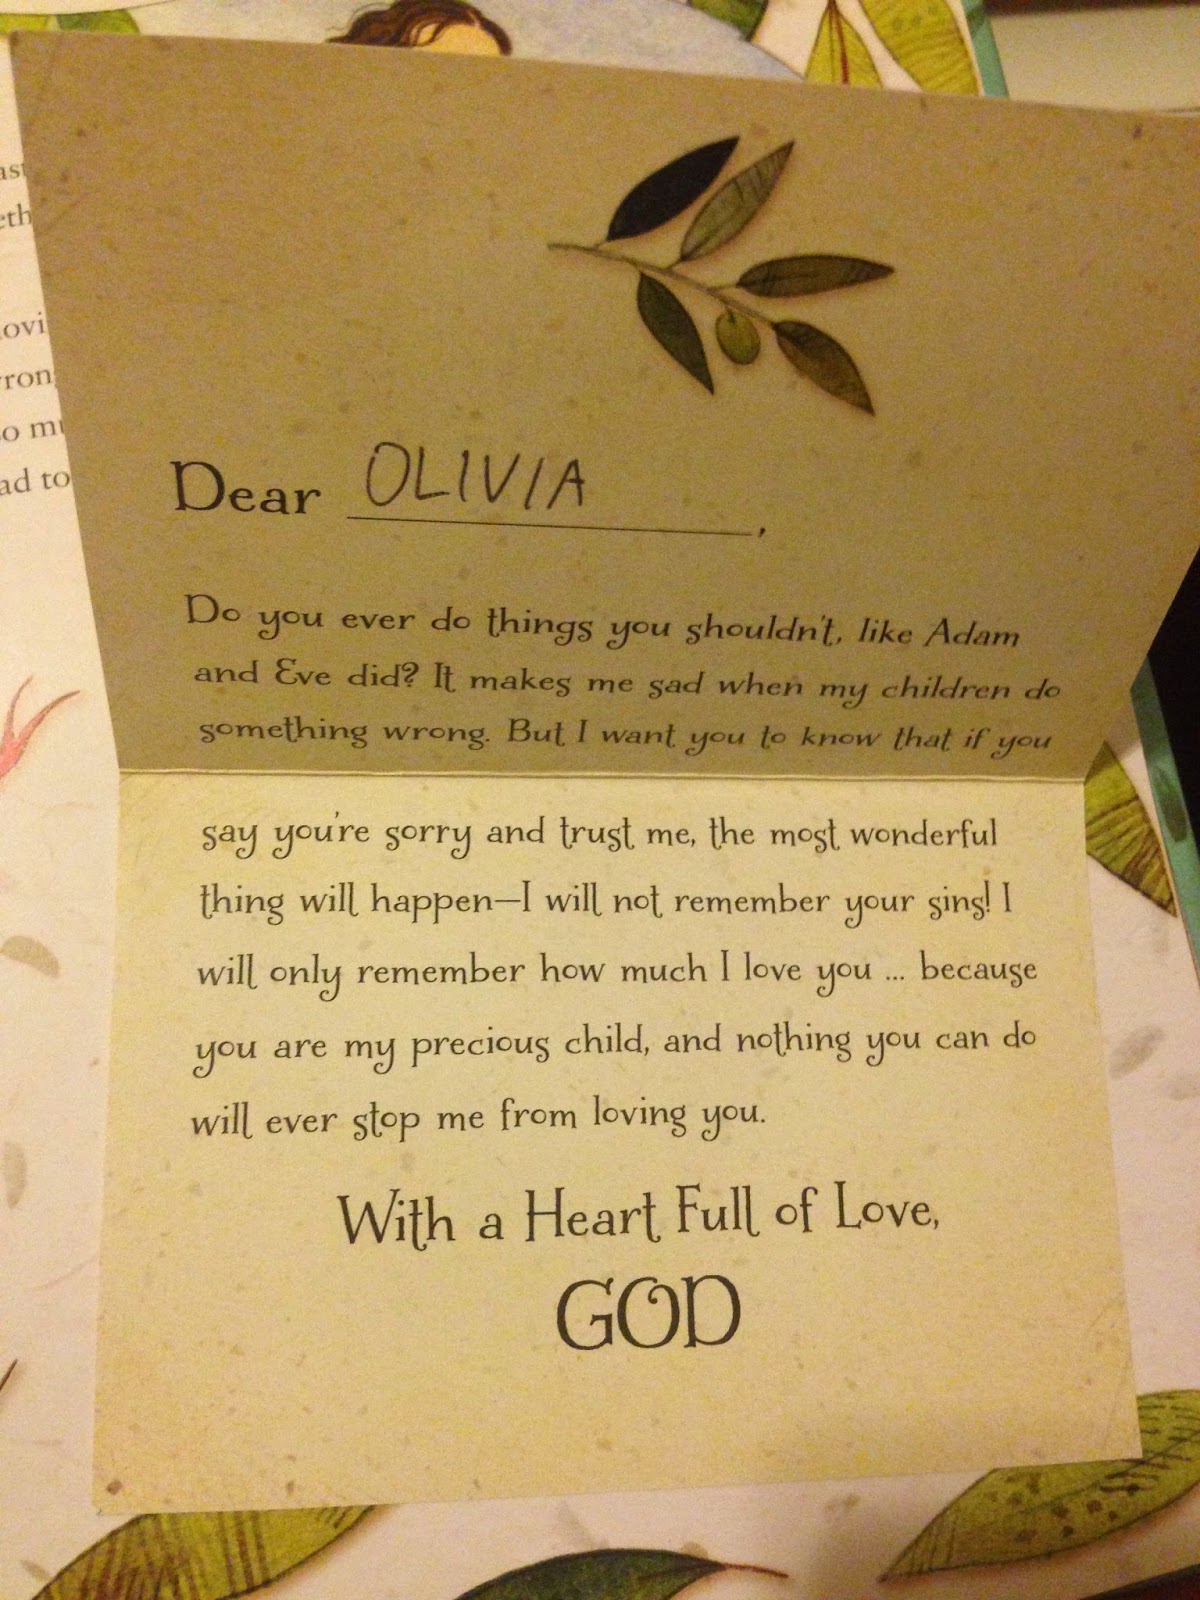 Dear OLIVIA,
Do you ever do things you shouldn't, like Adam
and Eve did? It makes me sad when my children do
something wrong. But I want you to know that if you
say you're sorry and trust me, the most wonderful
thing will happen—I will not remember your sins! I
will only remember how much I love you ... because
you are my precious child, and nothing you can do
will ever stop me from loving you.
With a Heart Full of Love,
GOD
ad to